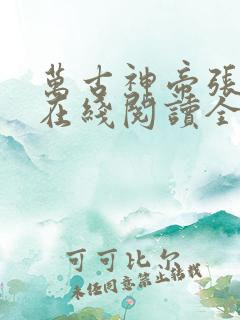 萬古神帝張
在綫閱讀全
可可比尔
未经同意禁止转载